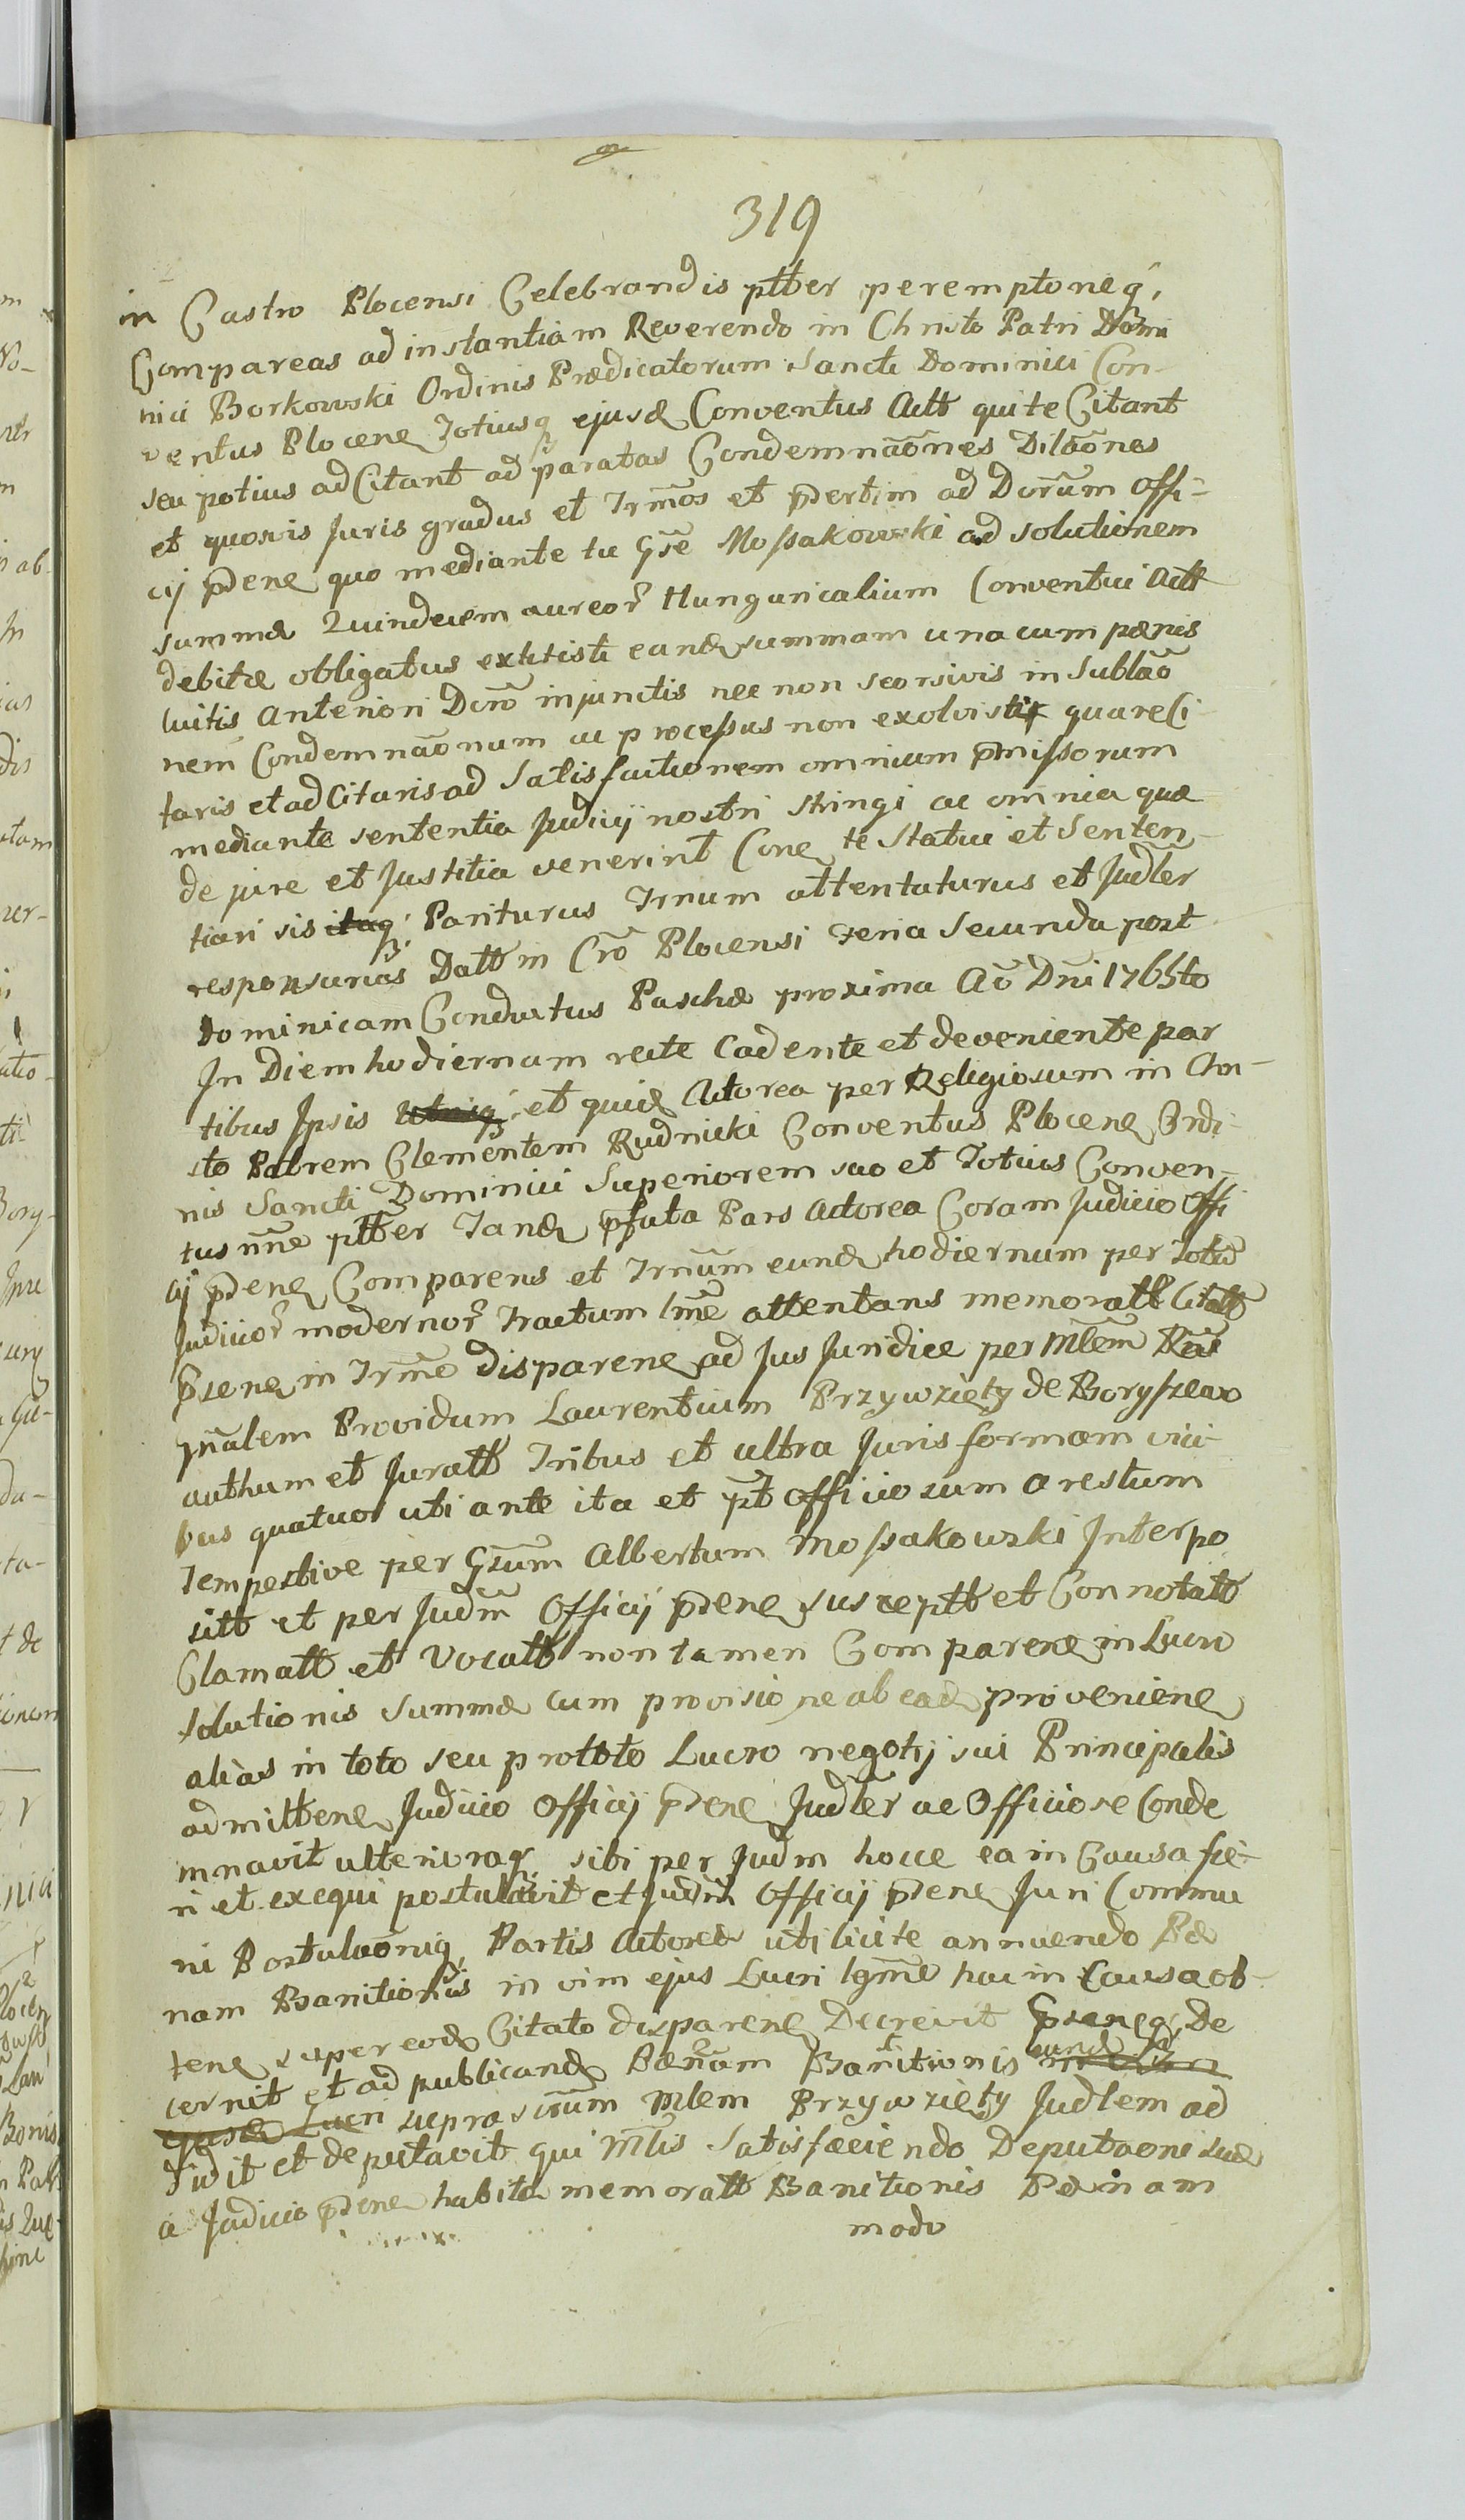 319
in Castro Plocensi Celebrandis ptber peremptoneq,
Compareas ad instantiam Reverendo in Christo Patri Domi
nici Borkowski Ordinis Prædicatorum Sancti Dominici Con-
ventus Plocenę Totiusq ejusd Conventus Actt qui te Citant
seu potius adCitant ad paratas Condemnãones Dilãones
et quosvis Juris gradus et Trmos et prtim ad Dorum Offi-
cij pdenę quo mediante tu Gse Mossakowski ad solutionem
summæ Quindecim aureor Hungaricalium Conventui Actt
debitæ obligatus extitisti eand summam una cum pænis
luitis anteriori Dcro injunctis nec non seorsivis in Sublão
nem Condemnãonum ac processus non exolvisti quare Ci
taris et adCitaris ad Satisfactionem omnium pmissorum
mediante sententia Judicij nostri stringi ac omnia quæ
de jure et Justitia venerint Conę te Statui et Senten-
tiari sis itaq Pariturus Trnum attentaturus et Judler
responsurus Datt in Cro Plocensi Feria Secunda post
Dominicam Conductus Paschæ proxima Ao Dni 1765to
In Diem hodiernam recte Cadente et deveniente par
tibus Ipsis et quid Actorea per Religiosum in Chri-
sto Patrem Clementem Rudnicki Conventus Plocenę Ordi-
nis Sancti Dominici Superiorem suo et Totius Conven-
tus nne ptber Tand pfata Pars Actorea Coram Judicio Offi
cij pdenę Comparens et Trnum eund hodiernum per Totũ
Judicior modernor Tractum lme attentans memoratt Citatt
psenę in Trme disparenę ad Jus Juridice per Mlem Rẽg
gnalem Providum Laurentium Przywzięty de Boryszewo
authum et Juratt Tribus et ultra Juris formam vici-
bus quatuor uti ante ita et pt officiosum arestum
Tempestive per Gsum Albertum Mossakowski Interpo
sitt et per Judm Officij pdenę susceptt et Connotatt
Clamatt et Vocatt non tamen Comparenę in Lucro
solutionis Summæ cum provisione ab ead provenienę
alias in toto seu pro toto Lucro negotij sui Principalis
admittenę Judicio Officij pdenę Judler ac Officiose Conde
mnavit ulterioraq sibi per Judm hocce ea in Causa fie-
ri et exequi postulavit et Judm Officij pdenę Juri Commu
ni Postulaoniq Partis Actoreæ uti licite annuendo Pæ
nam Banitionis in vim ejus Lucri lgme hac in Causa ob-
tenę super eod Citato disparenę Decrevit Psenęq De
cernit et ad publicand Pænam Banitionis hund
ejusd Lucri suprascrum Mlem Przywzięty Judlem ad
didit et deputavit qui Mlis Satisfaciendo Deputaoni suæ
a Judicio pdenę habita memoratt Banitionis Pænam
modo